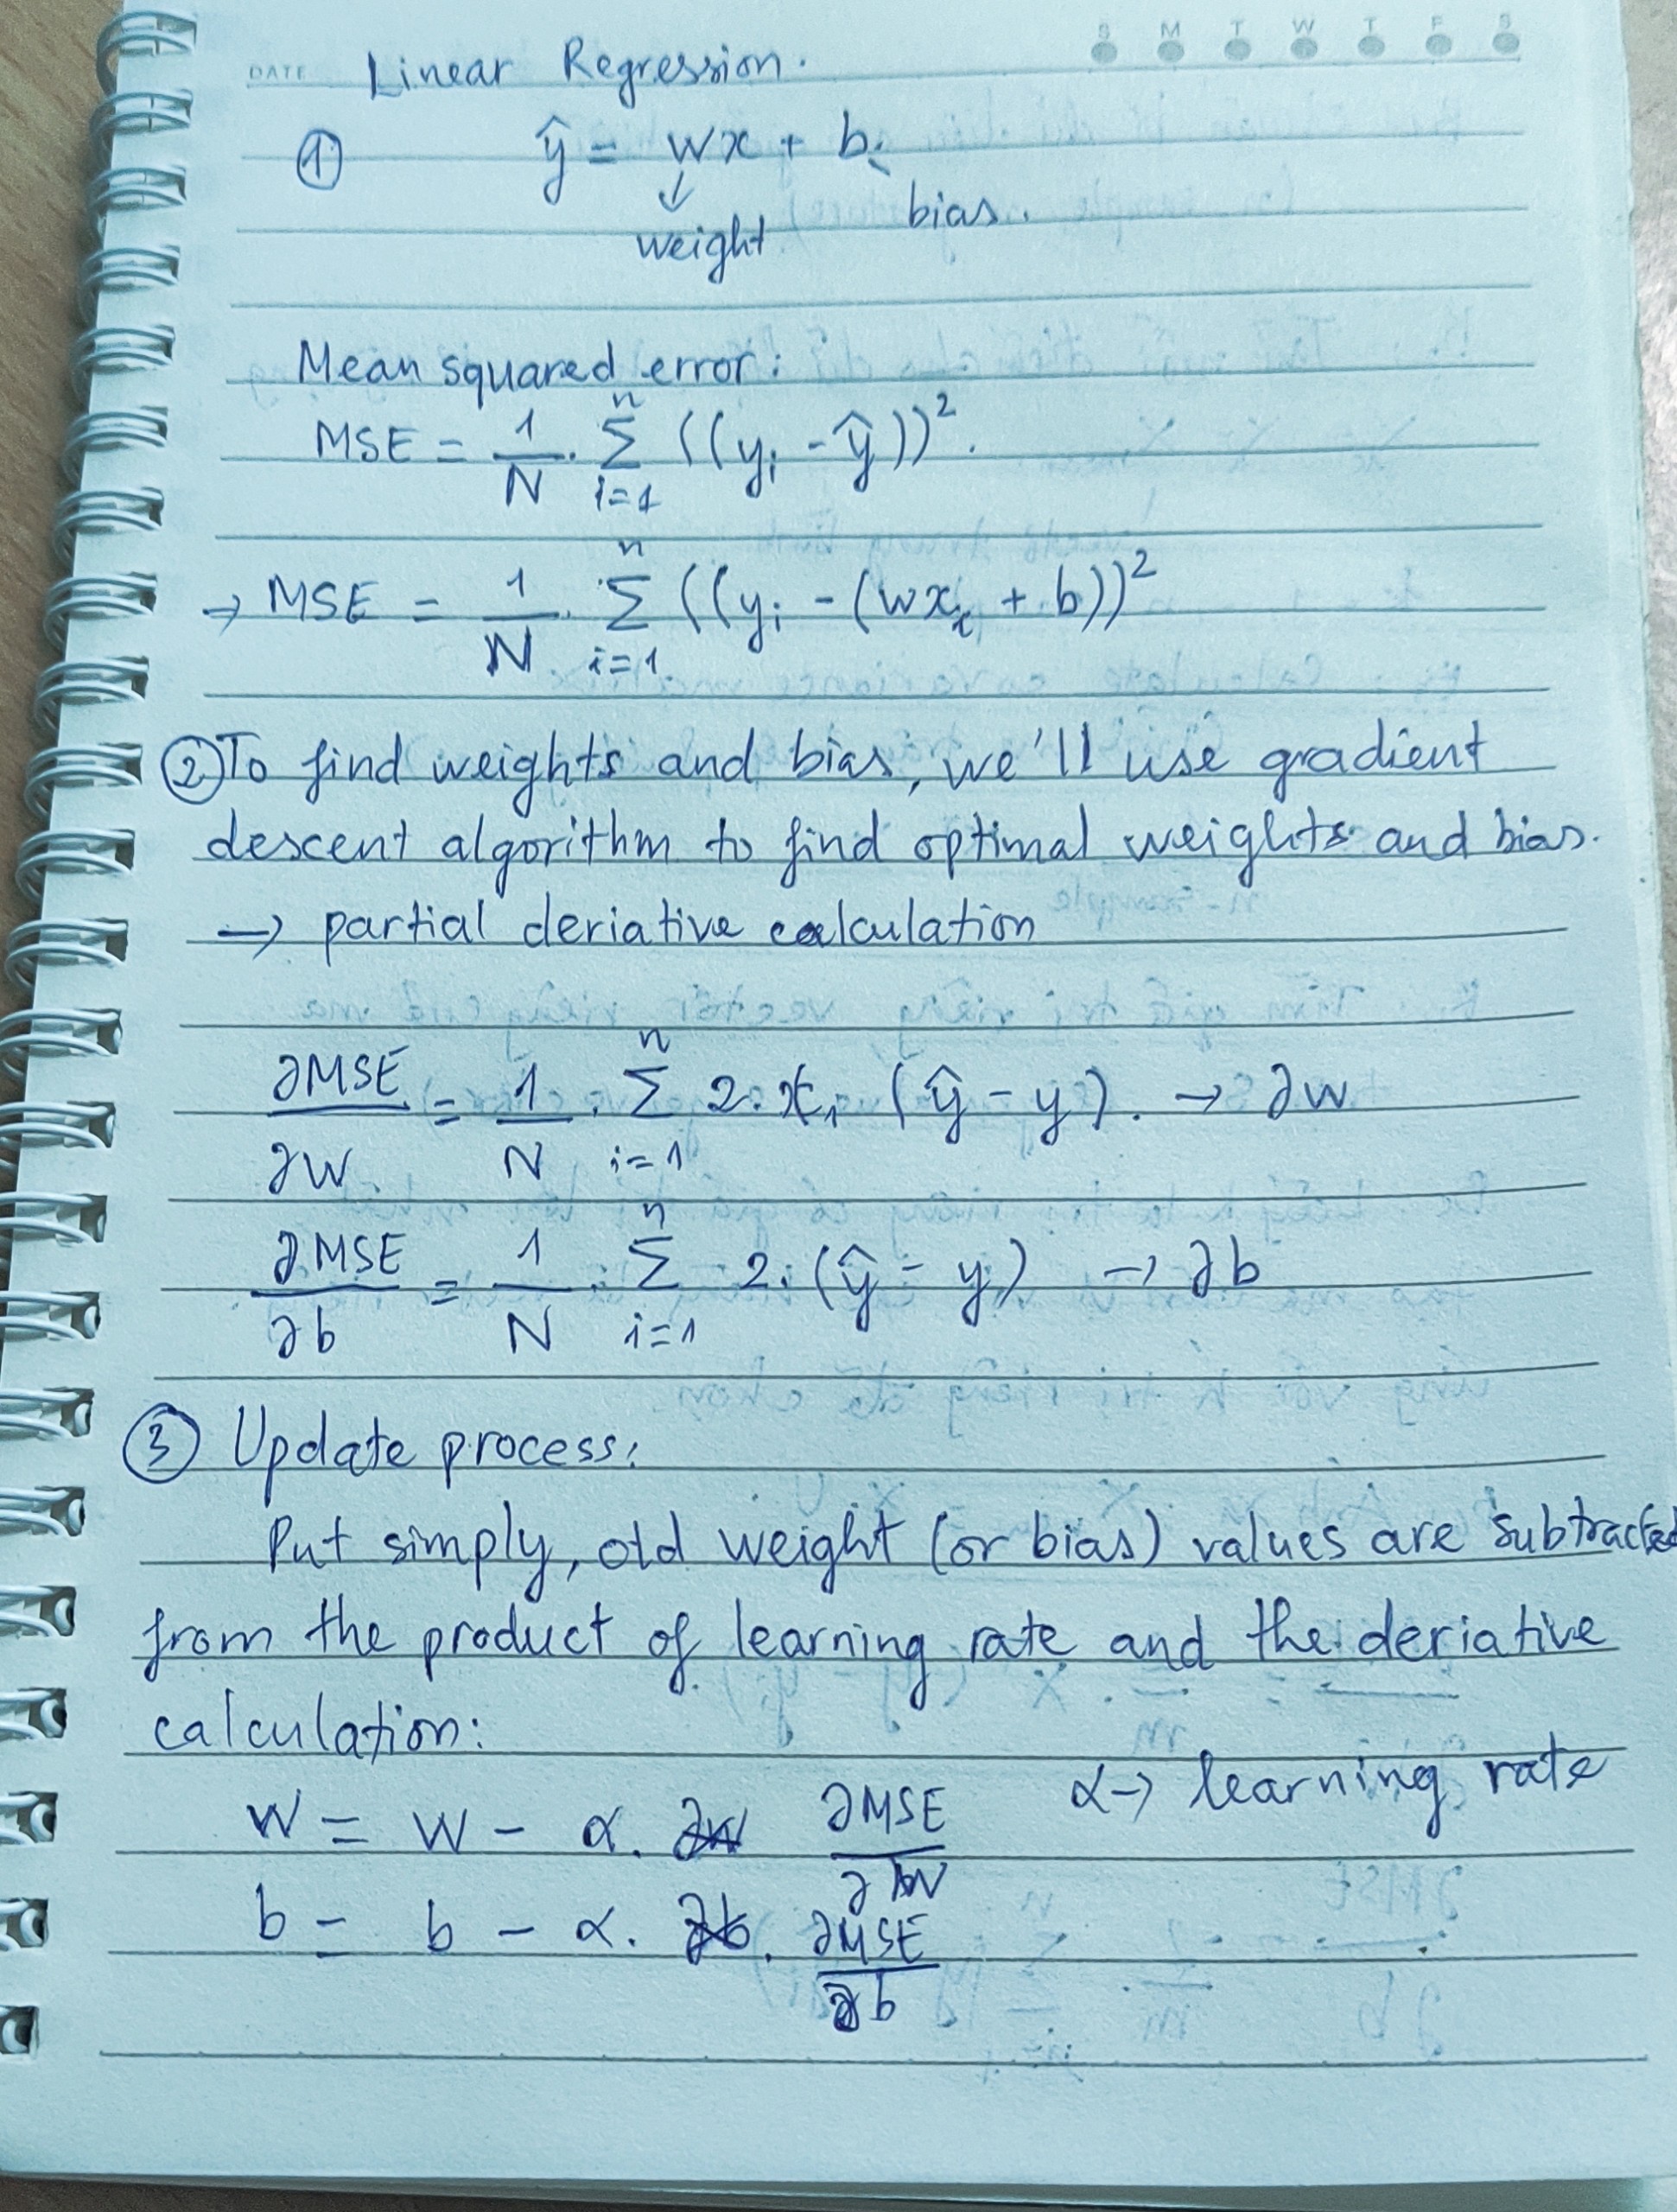 S M T W T F S
DATE Linear Regression.
① ŷ = wx + b.
weight bias.
Mean squared error:
MSE = 1/N . Σ_{i=1}^{n} ((y_i - ŷ))².
→ MSE = 1/N . Σ_{i=1}^{n} ((y_i - (wx_i + b))²
② To find weights and bias, we'll use gradient
descent algorithm to find optimal weights and bias.
→ partial deriative calculation
∂MSE/∂w = 1/N . Σ_{i=1}^{n} 2. x_i (ŷ - y). → ∂w
∂MSE/∂b = 1/N . Σ_{i=1}^{n} 2. (ŷ - y) → ∂b
③ Update process:
Put simply, old weight (or bias) values are subtracted
from the product of learning rate and the deriative
calculation:
α → learning rate
w = w - α. ∂MSE/∂w
b = b - α. ∂MSE/∂b